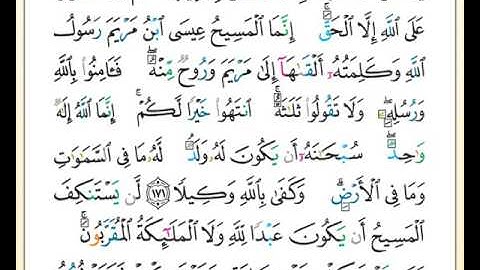 عَلَى ٱللَّهِ إِلَّا ٱلْحَقَّ ۚ إِنَّمَا ٱلْمَسِيحُ عِيسَى ٱبْنُ مَرْيَمَ رَسُولُ
ٱللَّهِ وَكَلِمَتُهُۥٓ أَلْقَىٰهَآ إِلَىٰ مَرْيَمَ وَرُوحٌ مِّنْهُ ۖ فَـَٔامِنُوا۟ بِٱللَّهِ
وَرُسُلِهِۦ ۖ وَلَا تَقُولُوا۟ ثَلَـٰثَةٌ ۚ ٱنتَهُوا۟ خَيْرًا لَّكُمْ ۚ إِنَّمَا ٱللَّهُ إِلَـٰهٌ
وَٰحِدٌ ۖ سُبْحَـٰنَهُۥٓ أَن يَكُونَ لَهُۥ وَلَدٌ ۘ لَّهُۥ مَا فِى ٱلسَّمَـٰوَٰتِ
وَمَا فِى ٱلْأَرْضِ ۗ وَكَفَىٰ بِٱللَّهِ وَكِيلًا ١٧١ لَّن يَسْتَنكِفَ
ٱلْمَسِيحُ أَن يَكُونَ عَبْدًا لِّلَّهِ وَلَا ٱلْمَلَـٰٓئِكَةُ ٱلْمُقَرَّبُونَ ۚ